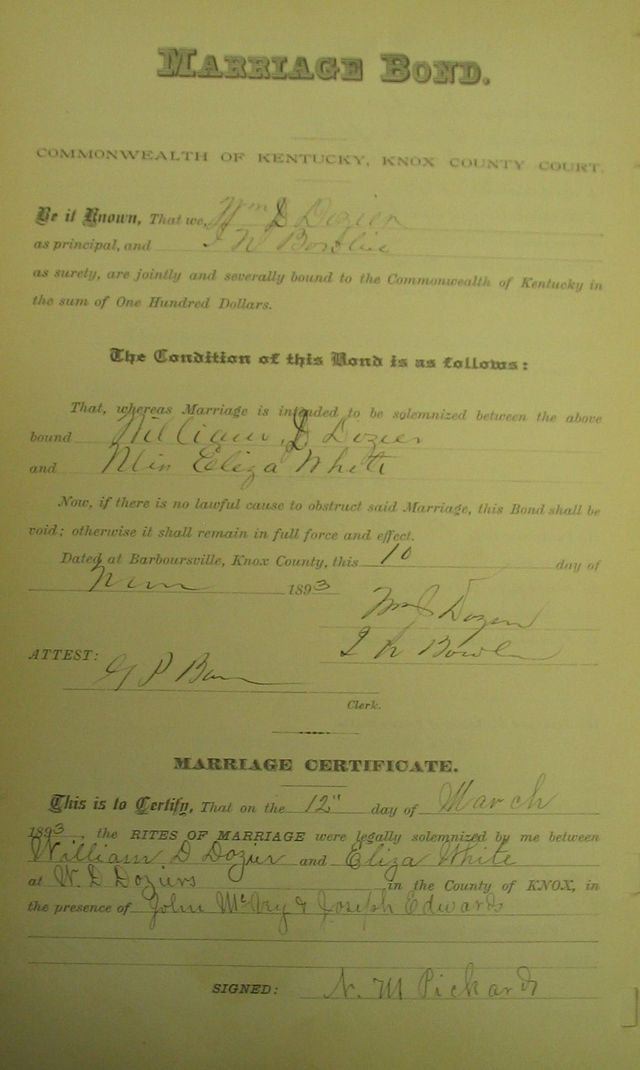 MARRIAGE BOND.
COMMONWEALTH OF KENTUCKY, KNOX COUNTY COURT.
Be it Known, That we, Wm D Dozier
as principal, and
as surety, are jointly and severally bound to the Commonwealth of Kentucky in
the sum of One Hundred Dollars.
The Condition of this Bond is as follows:
That, whereas Marriage is intended to be solemnized between the above
bound William D Dozier
and Miss Eliza White
Now, if there is no lawful cause to obstruct said Marriage, this Bond shall be
void; otherwise it shall remain in full force and effect.
Dated at Barboursville, Knox County, this 10 day of
1893
Wm Dozier
ATTEST:
G P
Clerk.
MARRIAGE CERTIFICATE.
This is to Certify, That on the 12" day of March
1893, the RITES OF MARRIAGE were legally solemnized by me between
William D Dozier and Eliza White
at W. D Doziers in the County of KNOX, in
the presence of John McVey & Joseph Edwards
SIGNED: N. M Pickard